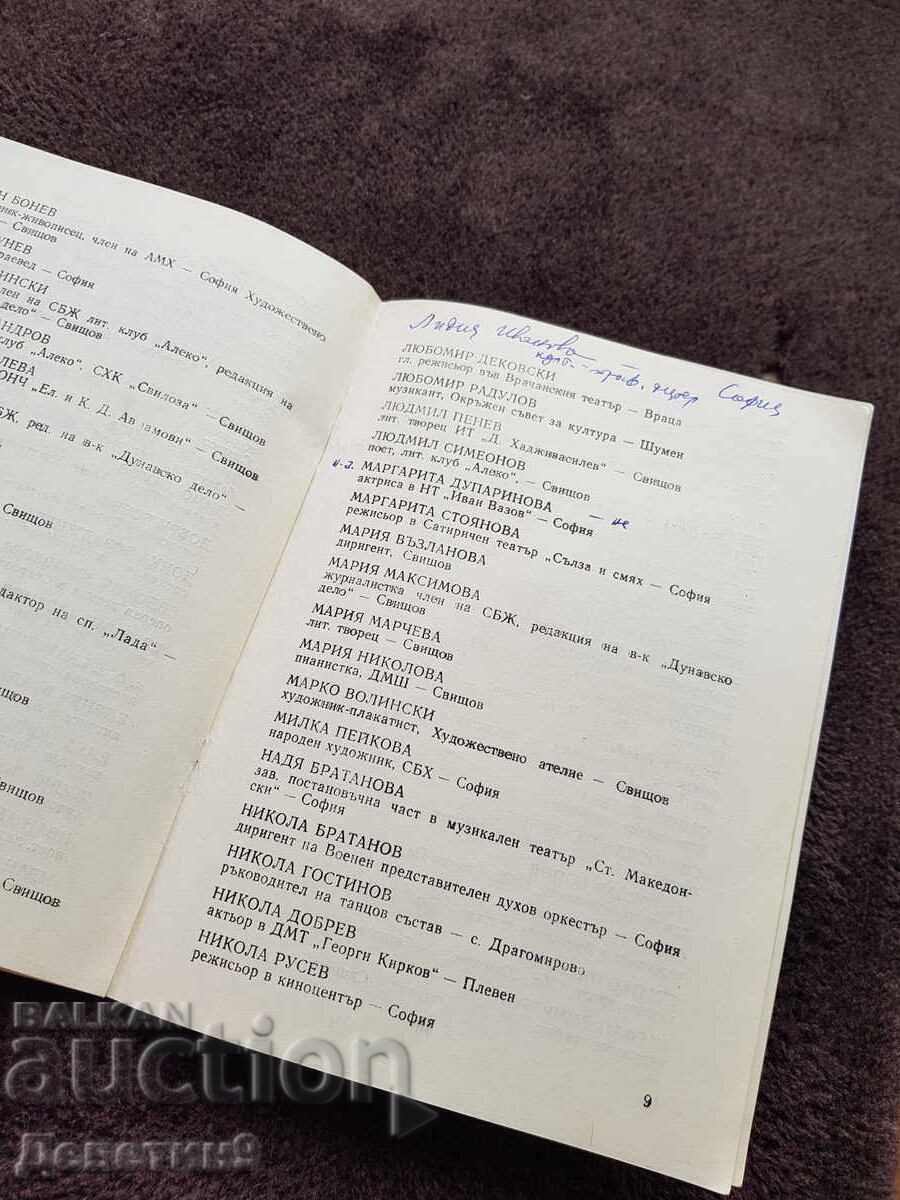 Н БОНЕВ
ник-живописец, член на АМХ — София Художествено
— Свищов
УНЕВ
раевед — София
ИНСКИ
лен на СБЖ лит. клуб „Алеко", редакция на
дело" — Свищов
АНДРОВ
клуб „Алеко". СХК „Свилоза" — Свищов
ЛЕВА
ОНЧ „Ел. и К. Д. Аврамови" — Свищов
БЖ, ред. на в-к „Дунавско дело"
Свищов
дактор на сп. „Лада" —
Свищов
Свищов
Свищов
Свищов
Лидия
София
ЛЮБОМИР ДЕКОВСКИ
гл. режисьор във Врачанския театър — Враца
ЛЮБОМИР РАДУЛОВ
музикант, Окръжен съвет за култура — Шумен
ЛЮДМИЛ ПЕНЕВ
лит. творец ИТ „Д. Хадживасилев" — Свищов
ЛЮДМИЛ СИМЕОНОВ
поет, лит. клуб „Алеко", — Свищов
МАРГАРИТА ДУПАРИНОВА — не
актриса в НТ „Иван Вазов" — София
МАРГАРИТА СТОЯНОВА
режисьор в Сатиричен театър „Сълза и смях — София
МАРИЯ ВЪЗЛАНОВА
диригент, Свищов
МАРИЯ МАКСИМОВА
журналистка член на СБЖ, редакция на в-к „Дунавско
дело" — Свищов
МАРИЯ МАРЧЕВА
лит. творец — Свищов
МАРИЯ НИКОЛОВА
пианистка, ДМШ — Свищов
МАРКО ВОЛИНСКИ
художник-плакатист, Художествено ателие — Свищов
МИЛКА ПЕЙКОВА
народен художник, СБХ — София
НАДЯ БРАТАНОВА
зав. постановъчна част в музикален театър „Ст. Македон-
ски" — София
НИКОЛА БРАТАНОВ
диригент на Военен представителен духов оркестър — София
НИКОЛА ГОСТИНОВ
ръководител на танцов състав — с. Драгомирово
НИКОЛА ДОБРЕВ
актьор в ДМТ „Георги Кирков" — Плевен
НИКОЛА РУСЕВ
режисьор в киноцентър — София
9
BALKAN
auction
Депетин9